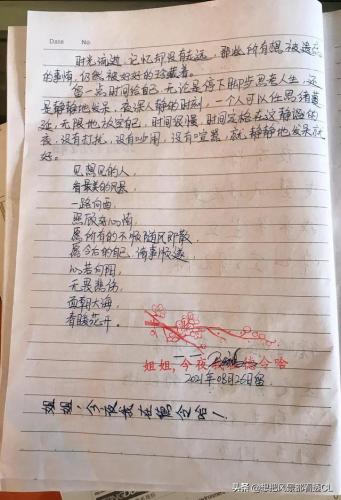 Date No
时光流逝，记忆却没有走远，那些所有想被遗忘
的事情，仍然被好好的珍藏着。
留一点时间给自己，无论是停下脚步思考人生，还
是静静地发呆，夜深人静的时刻，一个人可以任思绪蔓
延，无限地放空自己，时间很慢，时间定格在这静谧的
夜，没有打扰，没有吵闹，没有喧嚣，就静静地发呆就
好。
见想见的人，
看最美的风景，
一路向西，
照顾好心情，
愿所有的不顺随风即散，
愿今后的自己，诸事顺遂，
心若向阳，
无畏悲伤，
面朝大海，
春暖花开。
姐姐，今夜我在德令哈
2021年08月26日留
姐姐，今夜我在德令哈！
头条 @想把风景都看透CL